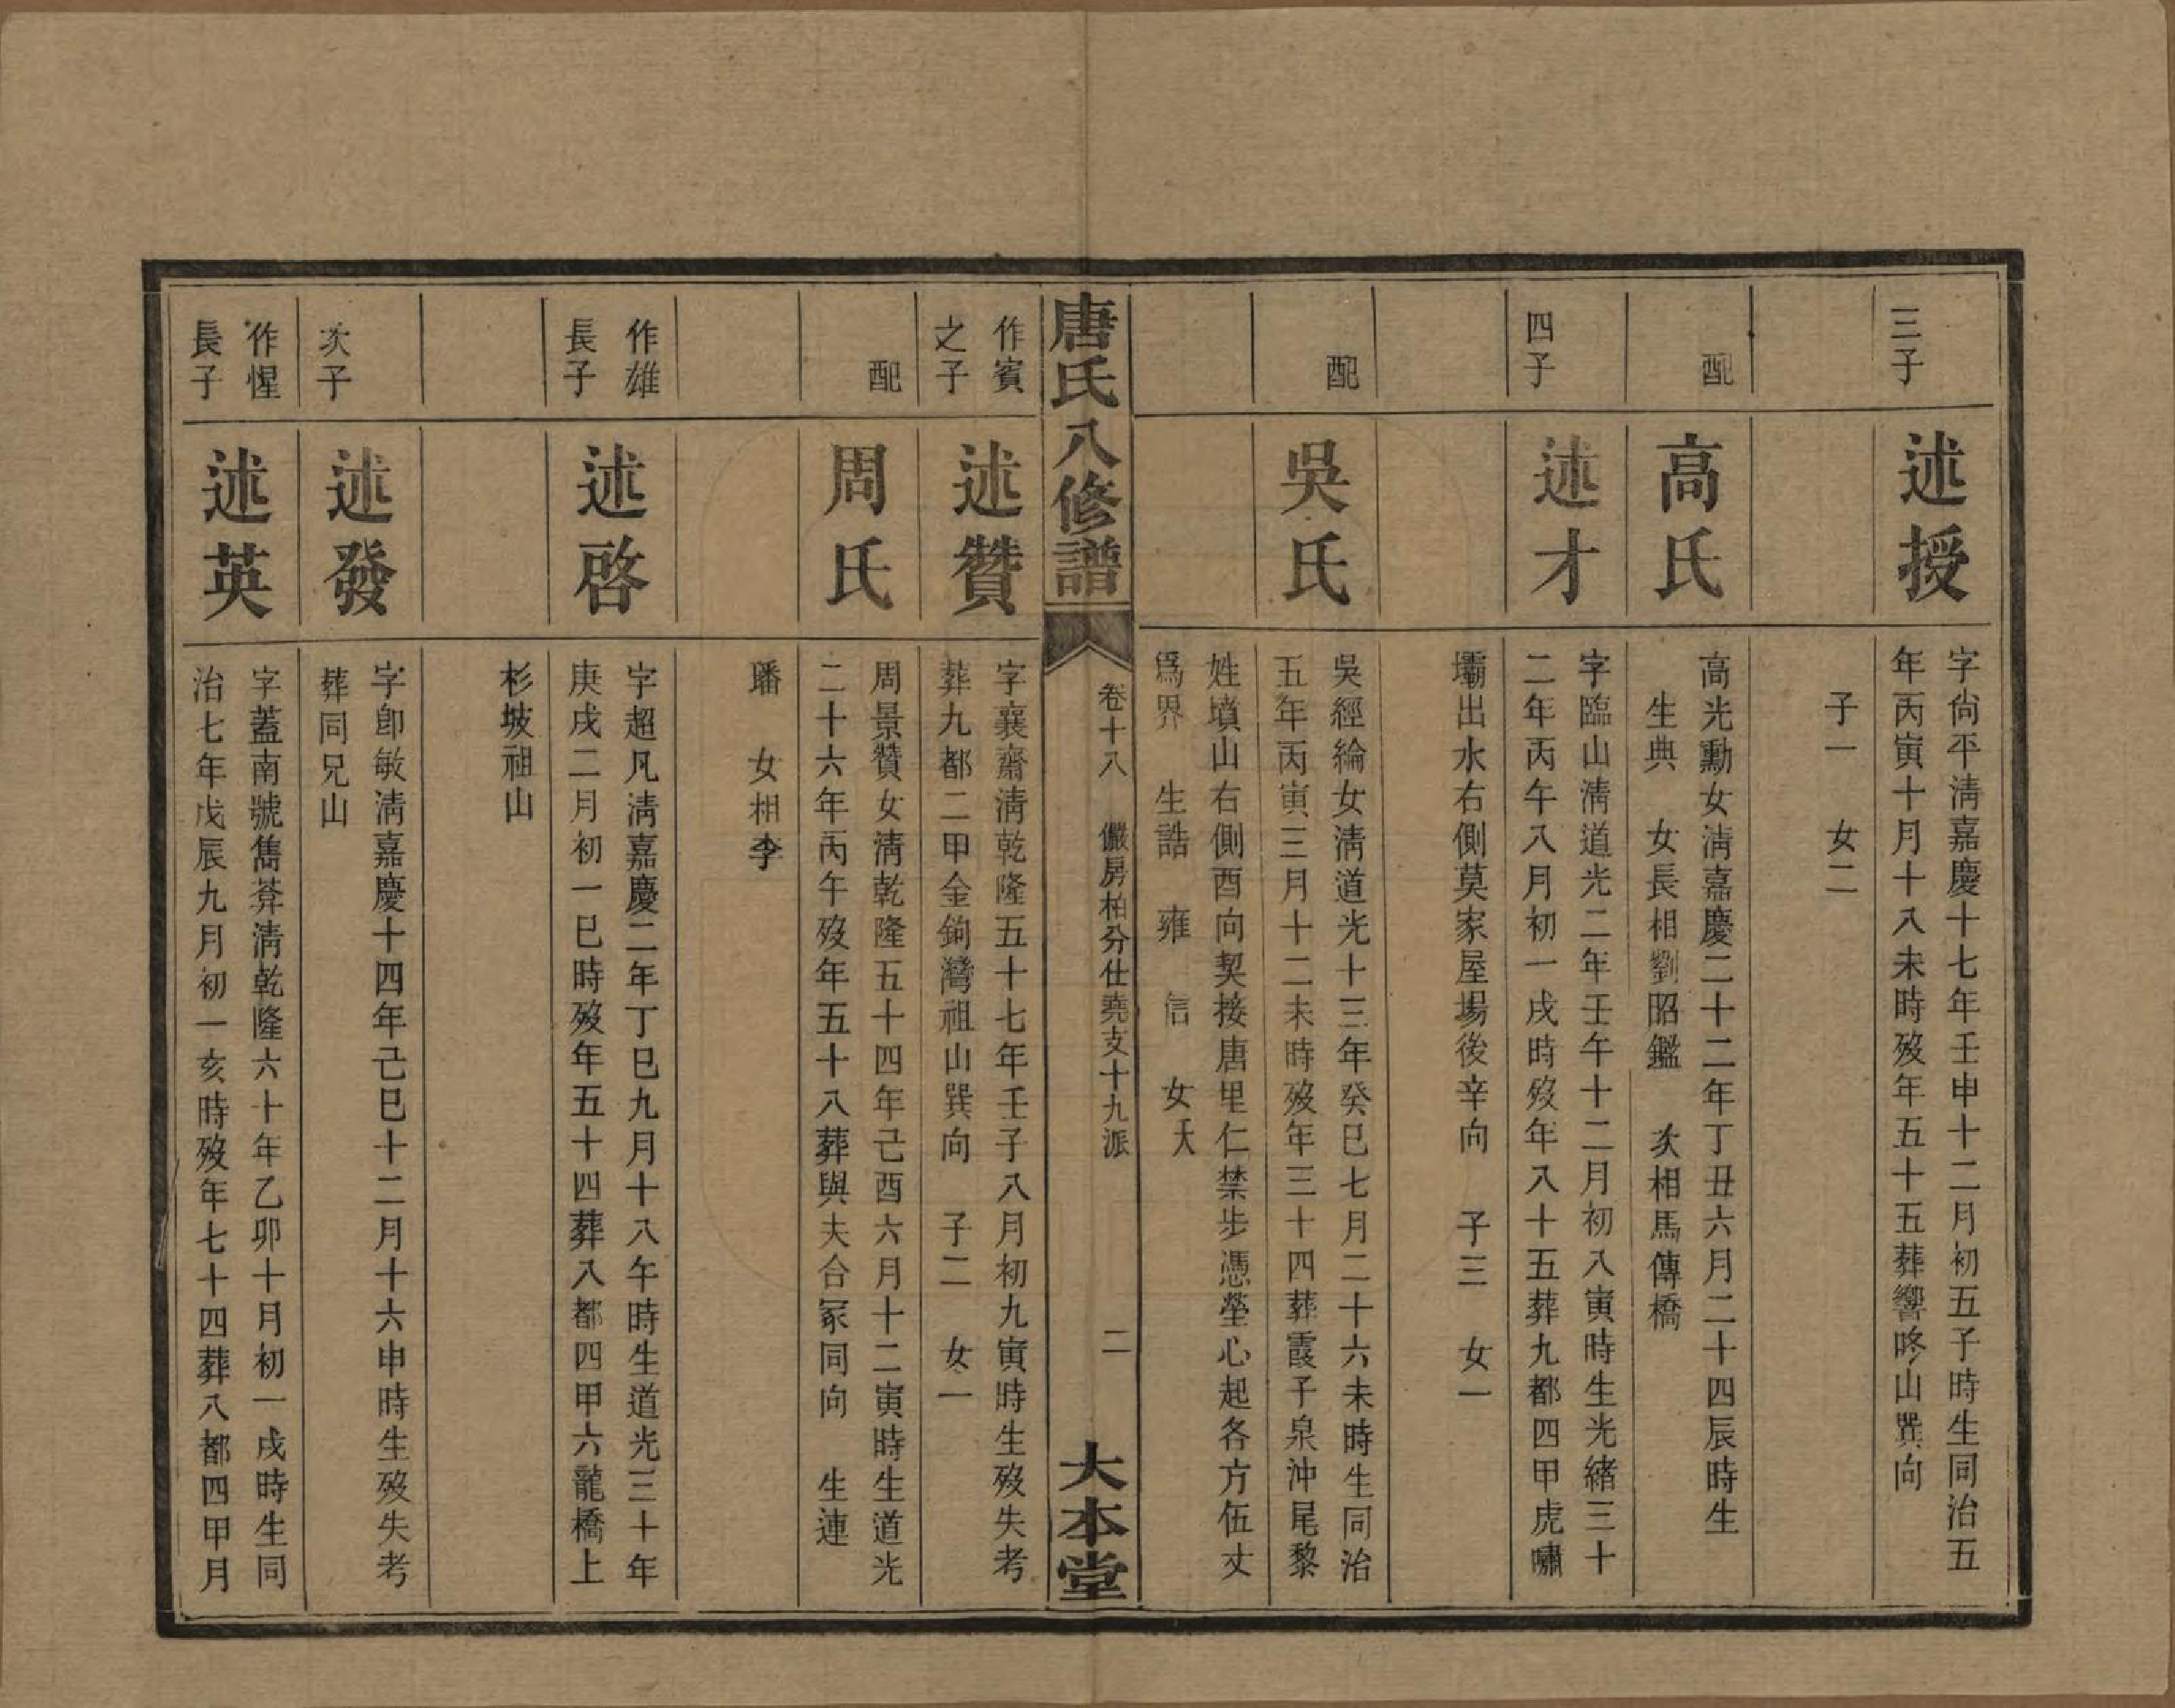 三子
述授
字尙平淸嘉慶十七年壬申十二月初五子時生同治五
年丙寅十月十八未時歿年五十五葬響咚山巽向
子一　女二
配
高氏
高光勳女淸嘉慶二十二年丁丑六月二十四辰時生
生典　女長相劉昭鑑　次相馬傳橋
四子
述才
字臨山淸道光二年壬午十二月初八寅時生光緒三十
二年丙午八月初一戌時歿年八十五葬九都四甲虎嘯
壩出水右側莫家屋場後辛向　子三　女一
配
吳氏
吳經綸女淸道光十三年癸巳七月二十六未時生同治
五年丙寅三月十二未時歿年三十四葬霞子泉沖尾黎
姓墳山右側酉向契接唐里仁禁步憑塋心起各方伍丈
爲界　生誥　雍　信　女夭
唐氏八修譜
卷十八　儼房柏分仕堯支十九派
二
大本堂
作賓
之子
述贊
字襄齋淸乾隆五十七年壬子八月初九寅時生歿失考
葬九都二甲金鉤灣祖山巽向　子二　女一
配
周氏
周景贊女淸乾隆五十四年己酉六月十二寅時生道光
二十六年丙午歿年五十八葬與夫合冢同向　生連
璠　女相李
作雄
長子
述啓
字超凡淸嘉慶二年丁巳九月十八午時生道光三十年
庚戌二月初一巳時歿年五十四葬八都四甲六龍橋上
杉坡祖山
次子
述發
字卽敏淸嘉慶十四年己巳十二月十六申時生歿失考
葬同兄山
作惺
長子
述英
字蓋南號雋葊淸乾隆六十年乙卯十月初一戌時生同
治七年戊辰九月初一亥時歿年七十四葬八都四甲月